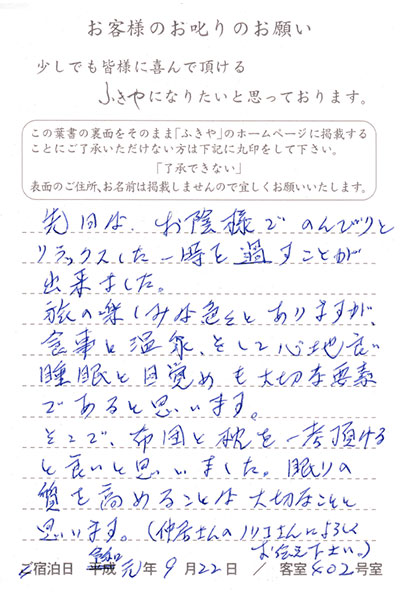 お客様のお叱りのお願い
少しでも皆様に喜んで頂ける
ふきやになりたいと思っております。
この葉書の裏面をそのまま「ふきや」のホームページに掲載する
ことにご了承いただけない方は下記に丸印をして下さい。
「了承できない」
表面のご住所、お名前は掲載しませんので宜しくお願いいたします。
先日は、お陰様でのんびりと
リラックスした一時を過すことが
出来ました。
旅の楽しみは色々とありますが、
食事と温泉、そして心地良い
睡眠と目覚めも大切な要素
であると思います。
そこで、布団と枕を一考頂ける
と良いと思いました。眠りの
質を高めることは大切なことと
思います。(仲居さんのノリコさんによろしく
お伝え下さい。)
ご宿泊日 平成 令和 元年 9月22日 / 客室 402号室